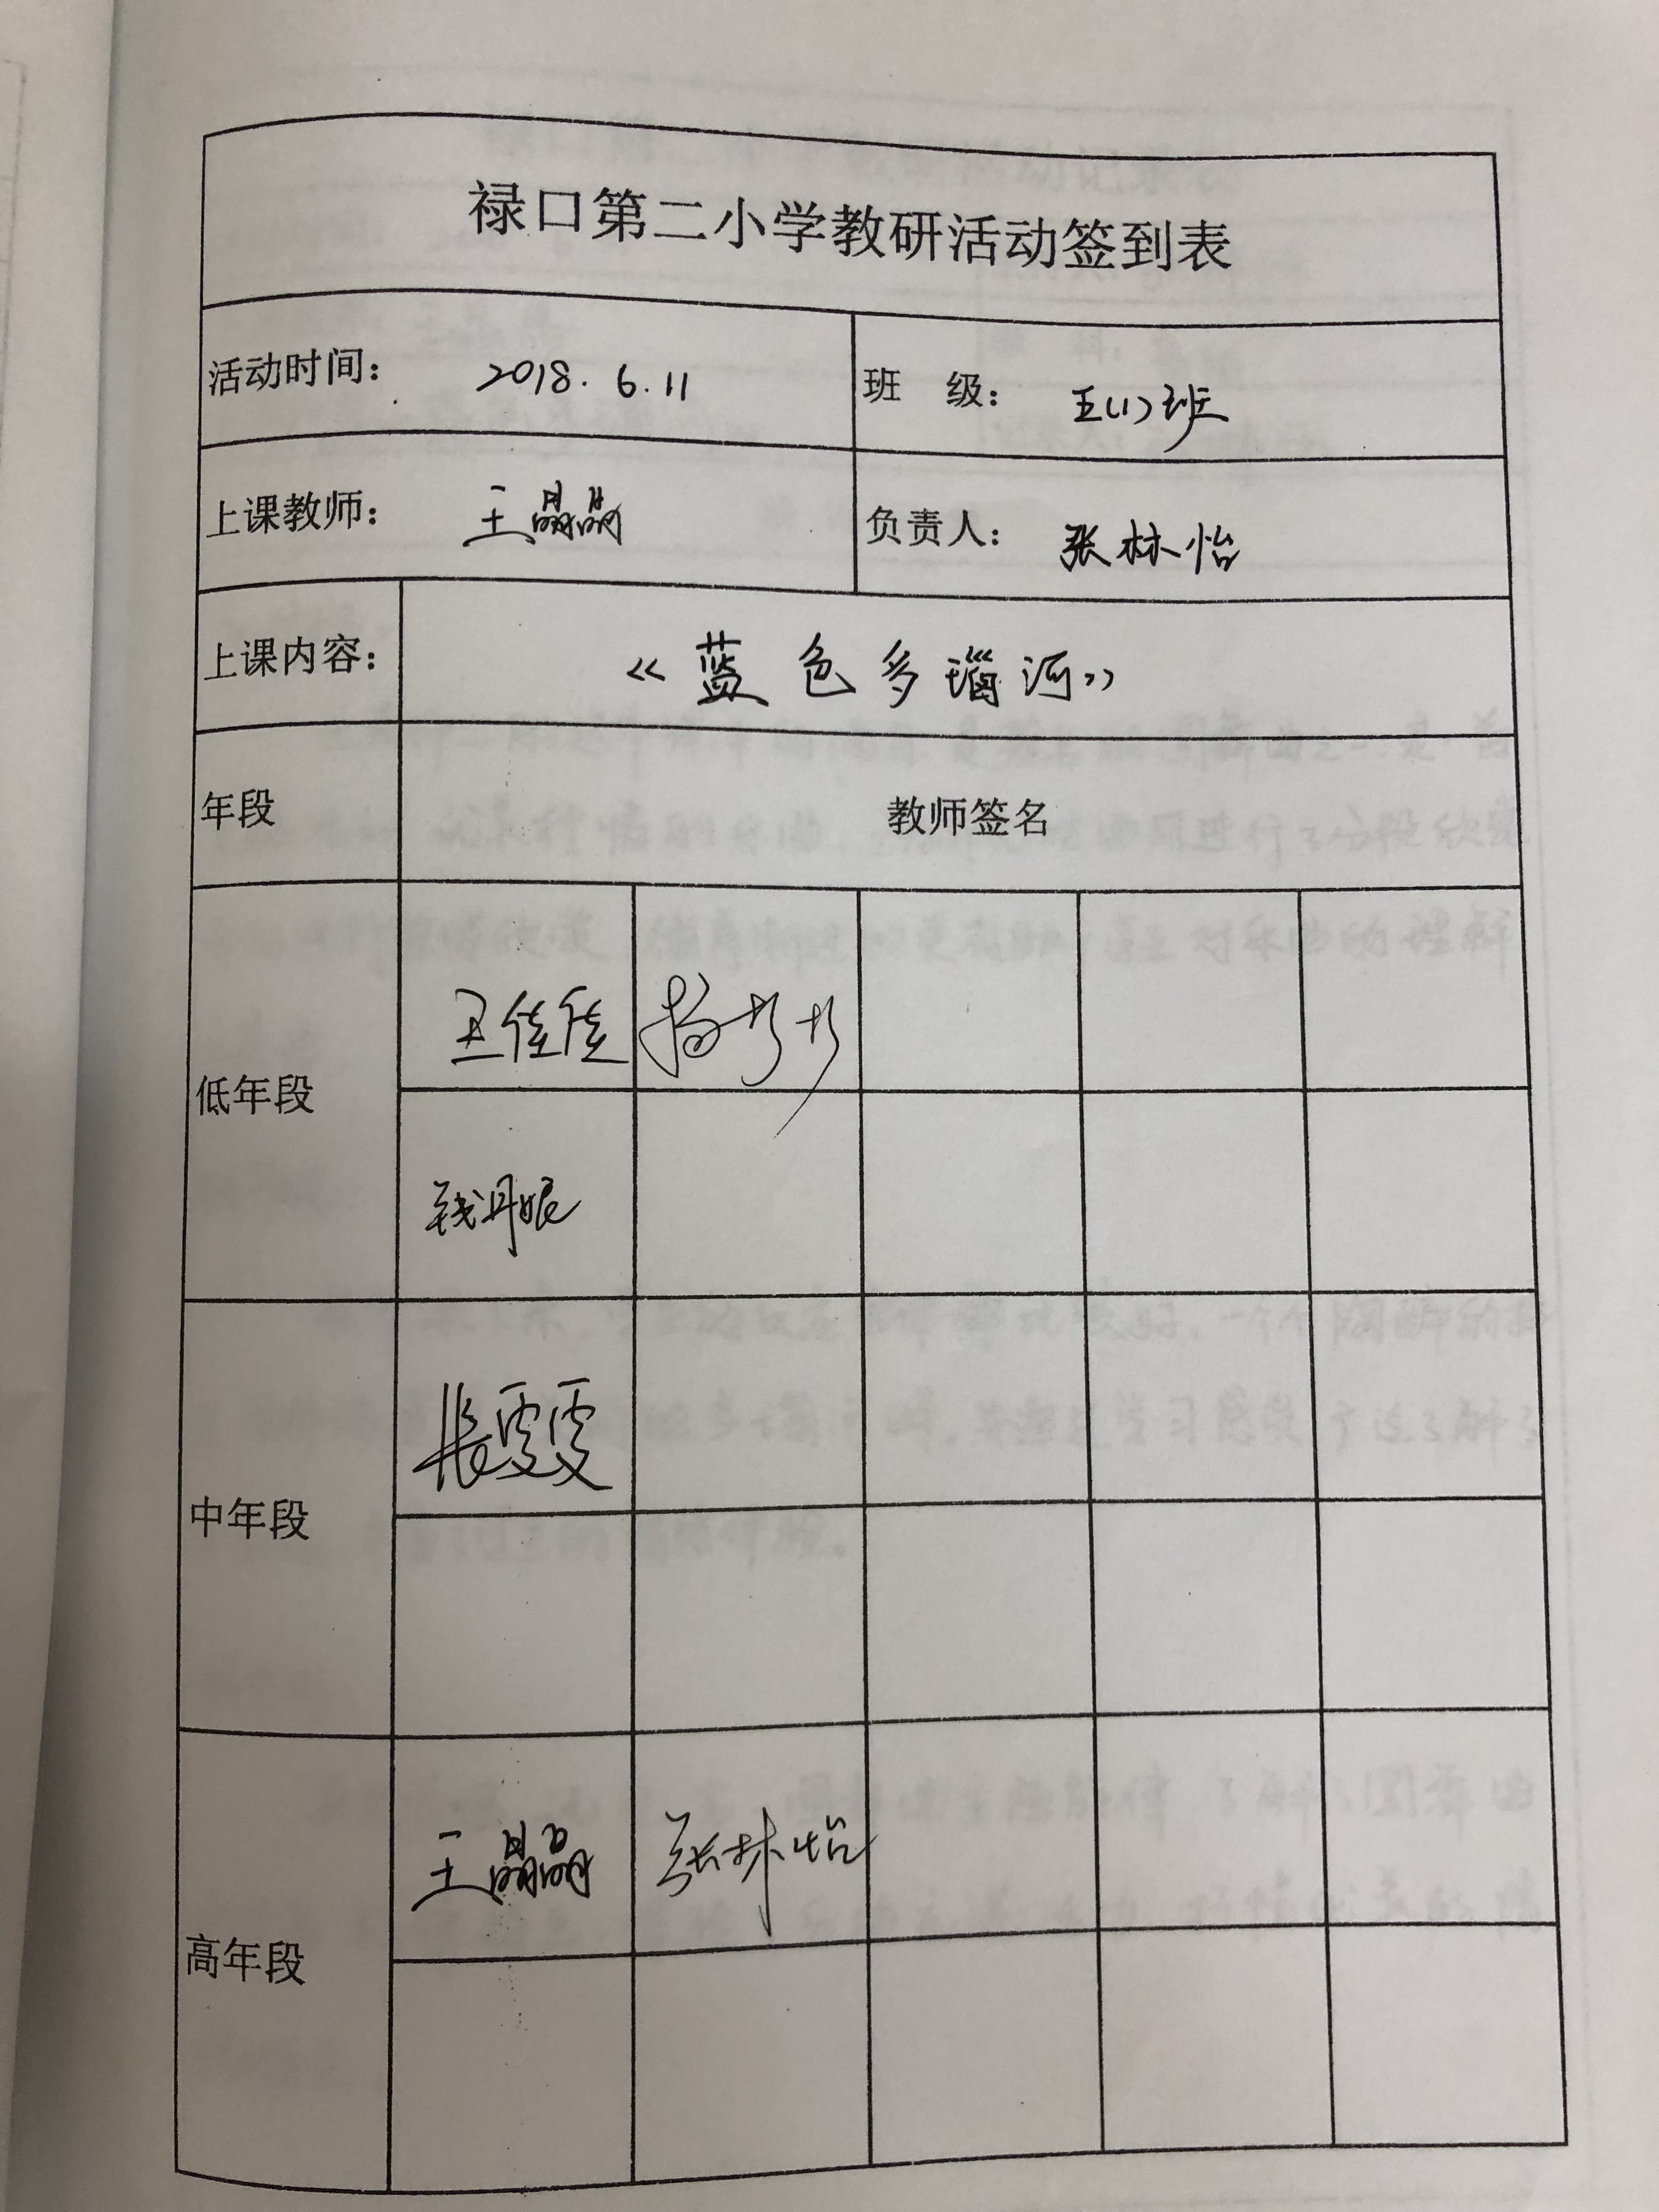 禄口第二小学教研活动签到表
活动时间： 2018.6.11 班 级： 五(1)班
上课教师： 王晶晶 负责人： 张林怡
上课内容： 《蓝色多瑙河》
年段 教师签名
低年段
王佳佳
钱丹妮
中年段
张雯雯
高年段
王晶晶 张林怡